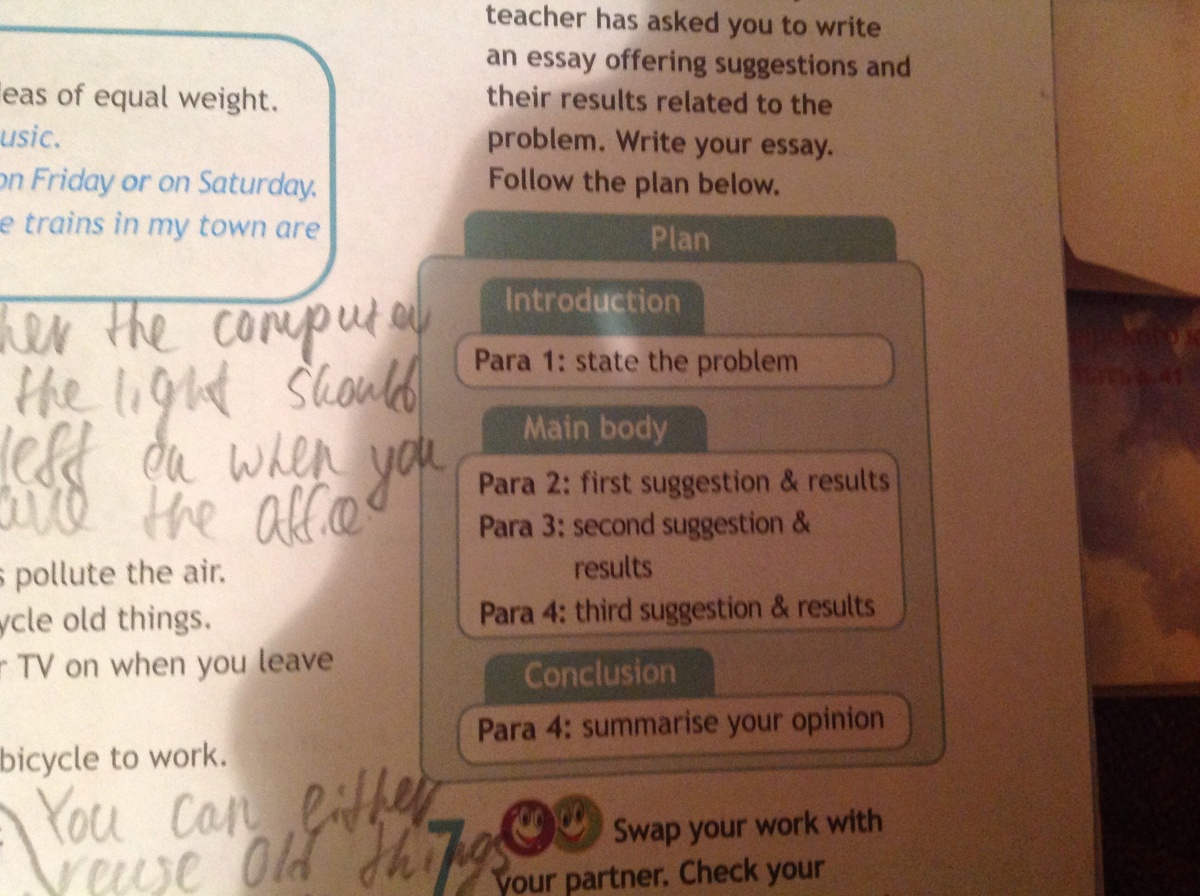 teacher has asked you to write
an essay offering suggestions and
their results related to the
problem. Write your essay.
Follow the plan below.
Plan
Introduction
Para 1: state the problem
Main body
Para 2: first suggestion & results
Para 3: second suggestion &
results
Para 4: third suggestion & results
Conclusion
Para 4: summarise your opinion
7 Swap your work with
your partner. Check your
of equal weight.
on Friday or on Saturday.
trains in my town are
the computer
the light should
when you
the office
pollute the air.
old things.
TV on when you leave
bicycle to work.
You can either
reuse old things